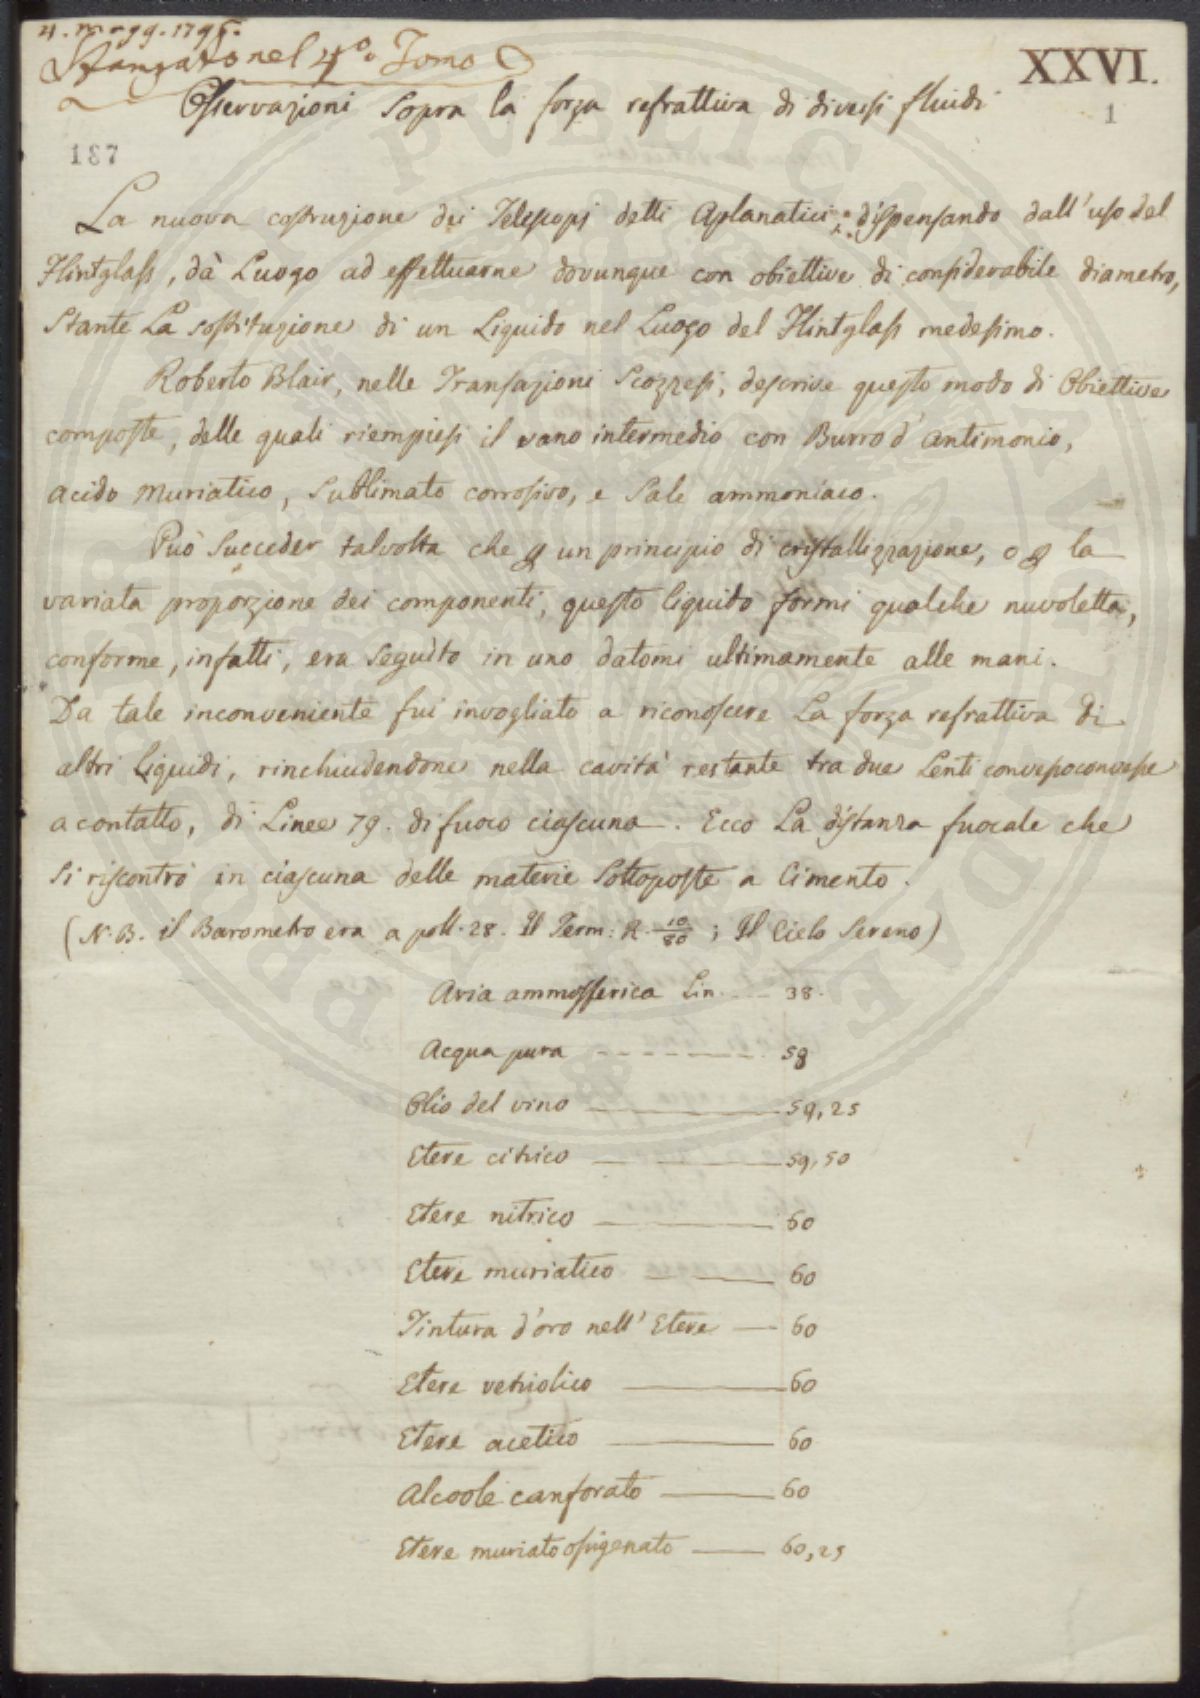 4. magg. 1796.
Stampato nel 4º. Tomo
XXVI.
Osservazioni sopra la forza refrattiva di diversi fluidi
1
187
La nuova costruzione dei Telescopj detti Aplanatici dispensando dall'uso del
Flintglass, dà Luogo ad effettuarne dovunque con obiettive di considerabile diametro,
stante La sostituzione di un Liquido nel Luogo del Flintglass medesimo.
Roberto Blair, nelle Transazioni Scozzesi, descrive questo modo di Obiettive
composte, delle quali riempiesi il vano intermedio con Burro d'antimonio,
acido muriatico, Sublimato corrosivo, e Sale ammoniaco.
Può succeder talvolta che un principio di cristallizzazione, o la
variata proporzione dei componenti, questo liquido formi qualche nuvoletta,
conforme, infatti, era seguito in uno datomi ultimamente alle mani.
Da tale inconveniente fui invogliato a riconoscere La forza refrattiva di
altri Liquidi, rinchiudendone nella cavità restante tra due Lenti convessoconvesse
a contatto, di Linee 79. di fuoco ciascuna. Ecco La distanza fuocale che
si riscontrò in ciascuna delle materie sottoposte a Cimento.
(N.B. il Barometro era a poll. 28. Il Term: R. 10/80; Il Cielo Sereno)
Aria ammosferica Lin. --- 38.
Acqua pura - - - - - - - - 58
Olio del vino ——— 59,25
Etere citrico ——— 59,50
Etere nitrico ——— 60
Etere muriatico ——— 60
Tintura d'oro nell'Etere — 60
Etere vetriolico ——— 60
Etere acetico ——— 60
Alcoole canforato ——— 60
Etere muriatossigenato —— 60,25